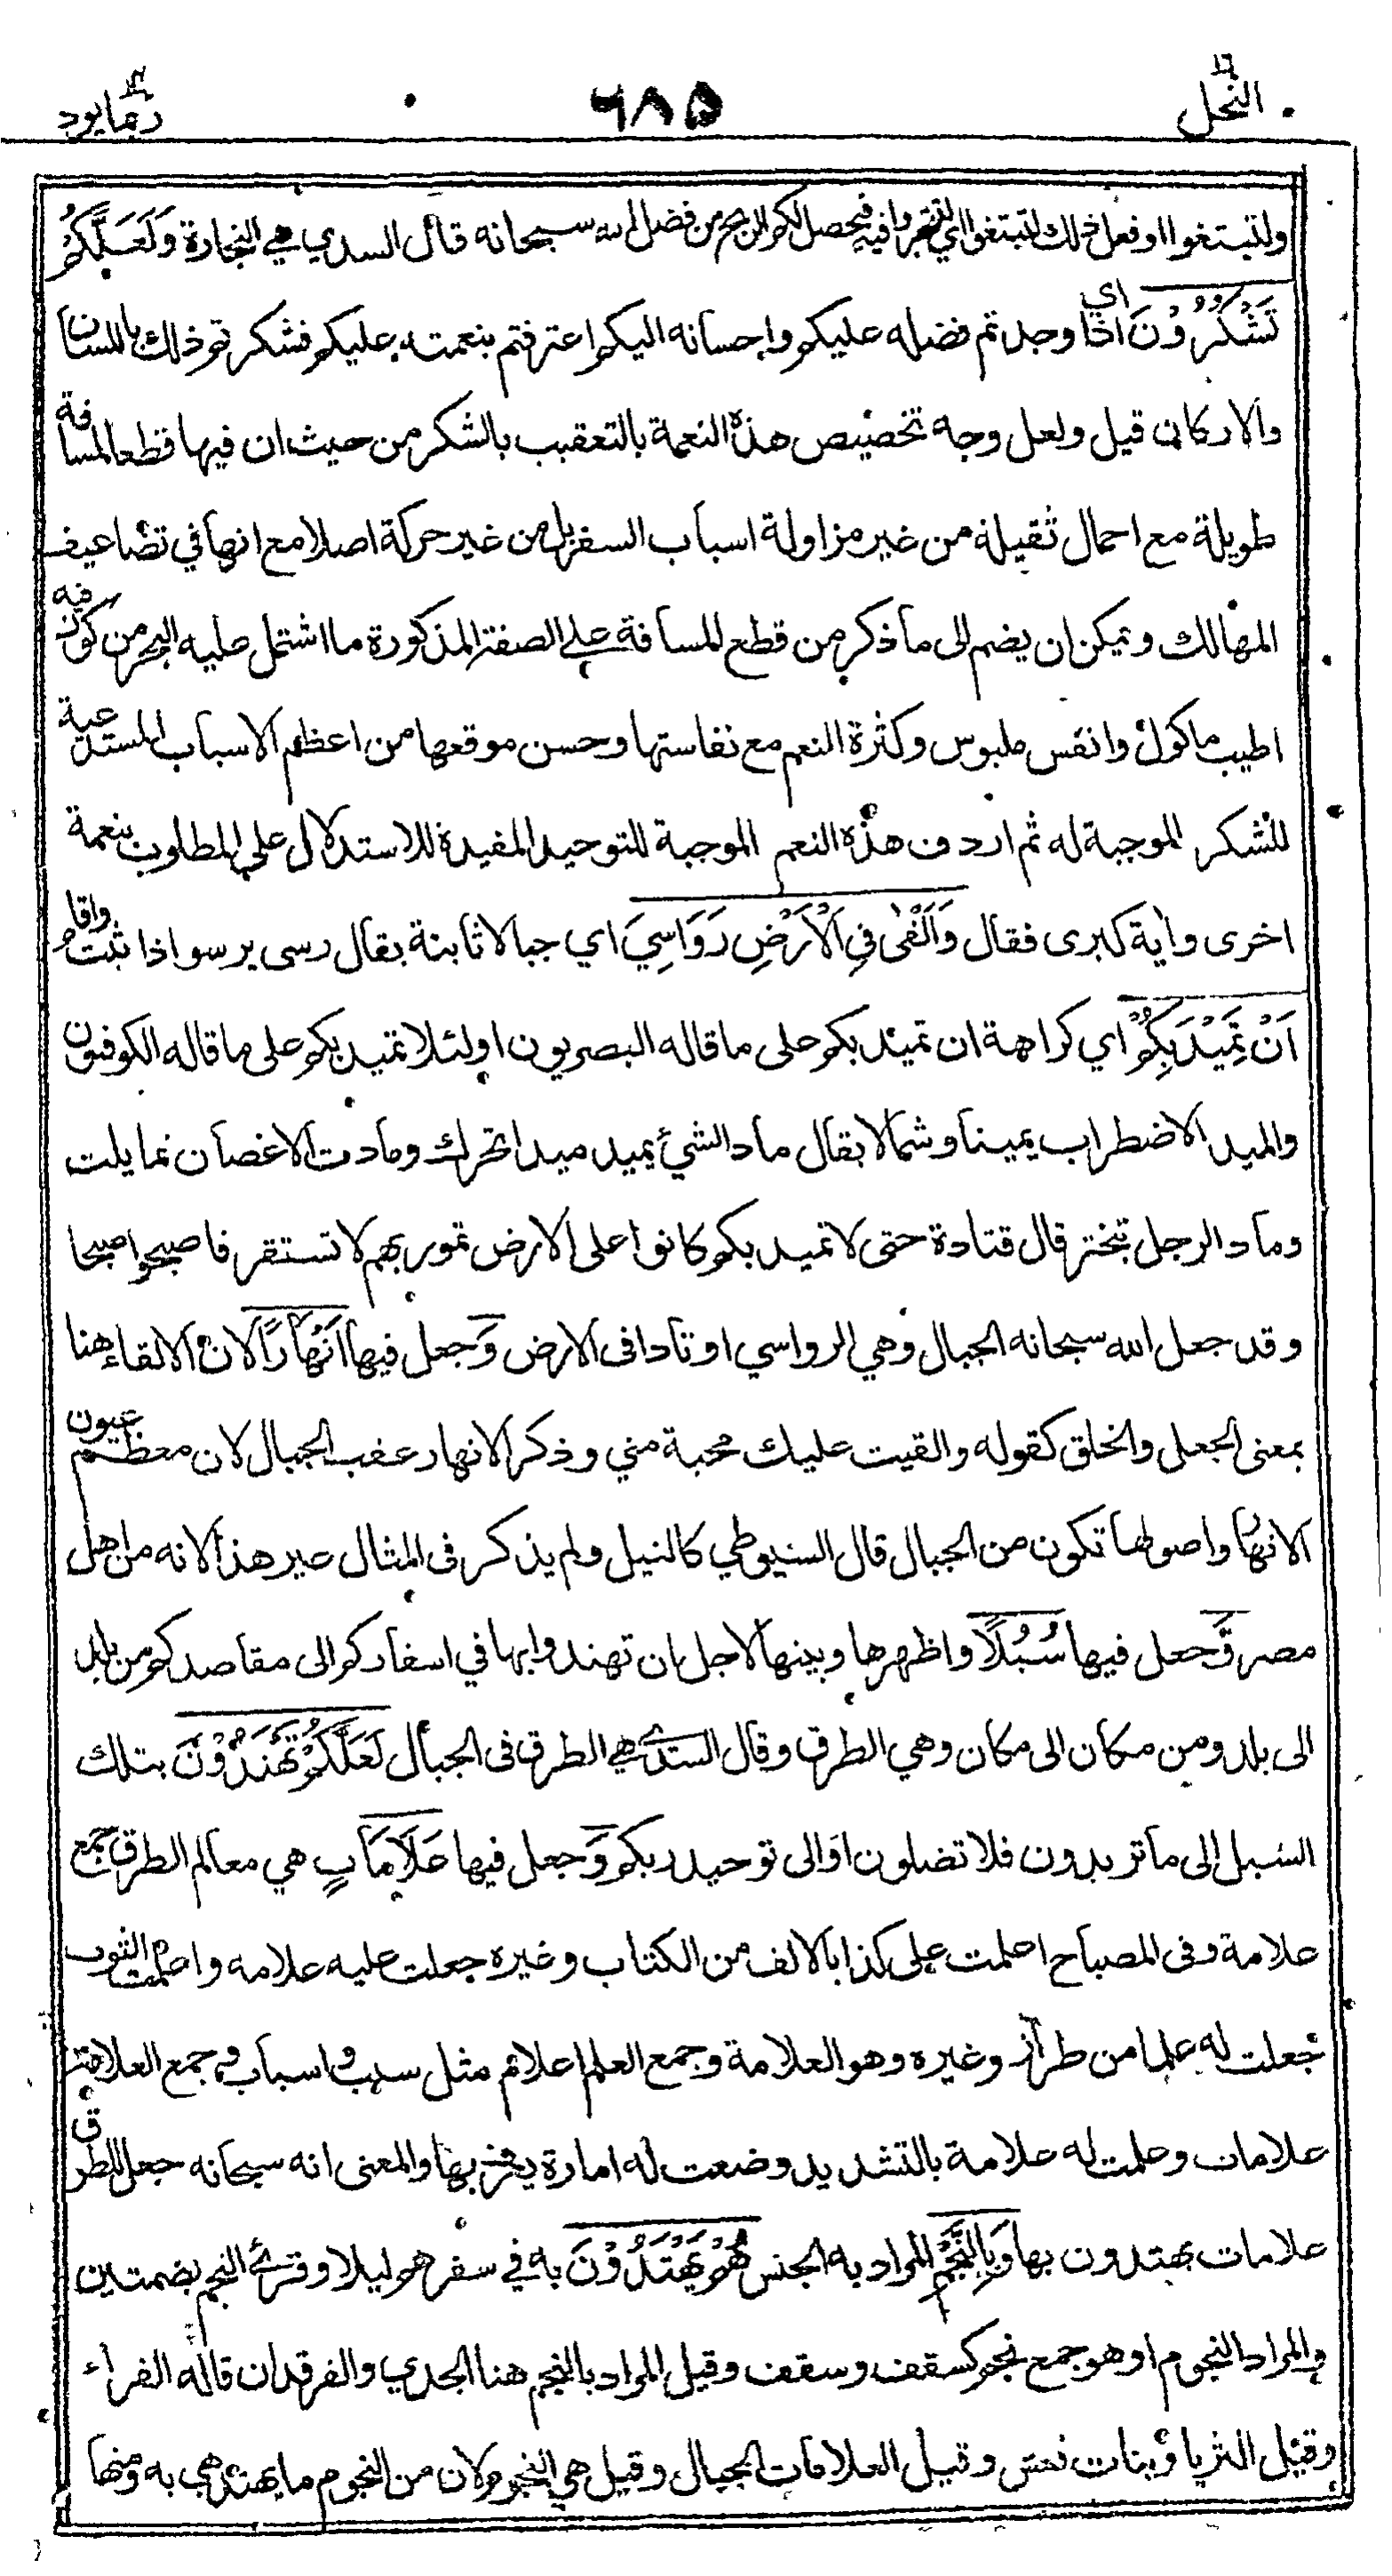 النحل ١٦
٦٨٥
ربما يود ١٤
ولتبتغوا او فعل ذلك لتبتغوا اي لتتجروا فيه فيحصل لكم الربح من فضل الله سبحانه قال السدي هي التجارة وَلَعَلَّكُمْ
تَشْكُرُوْنَ اي اذا وجدتم فضله عليكم واحسانه اليكم اعترفتم بنعمته عليكم فشكرتم ذلك باللسان
والاركان قيل ولعل وجه تخصيص هذه النعمة بالتعقيب بالشكر من حيث ان فيها قطعا لمسافة
طويلة مع احمال ثقيلة من غير مزاولة اسباب السفر بل من غير حركة اصلا مع انها في تضاعيف
المهالك ويمكن ان يضم الى ما ذكر من قطع المسافة على الصفة المذكورة ما اشتمل عليه البحر من كون فيه
اطيب ماكول وانفس ملبوس وكثرة النعم مع نفاستها وحسن موقعها من اعظم الاسباب المستدعية
للشكر الموجبة له ثم اردف هذه النعم الموجبة للتوحيد المفيدة للاستدلال على المطلوب بنعمة
اخرى واية كبرى فقال وَاَلْقٰى فِى الْاَرْضِ رَوَاسِيَ اي جبالا ثابتة يقال رسى يرسو اذا ثبت واقام
اَنْ تَمِيْدَ بِكُمْ اي كراهة ان تميد بكم على ما قاله البصريون او لئلا تميد بكم على ما قاله الكوفيون
والميد الاضطراب يمينا وشمالا يقال ماد الشيء يميد ميدا تحرك ومادت الاغصان تمايلت
وماد الرجل تبختر قال قتادة حتى لا تميد بكم كانوا على الارض تمور بهم لا تستقر فاصبحوا صبحا
وقد جعل الله سبحانه الجبال وهي الرواسي اوتادا في الارض وَ جعل فيها اَنْهَارًا لان الالقاء هنا
بمعنى الجعل والخلق كقوله والقيت عليك محبة مني وذكر الانهار عقب الجبال لان معظم عيون
الانهار واصولها تكون من الجبال قال السيوطي كالنيل ولم يذكر في المثال غير هذا لانه من اهل
مصر وَّ جعل فيها سُبُلًا واظهرها وبينها لاجل ان تهتدوا بها في اسفاركم الى مقاصدكم من بلد
الى بلد ومن مكان الى مكان وهي الطرق وقال السدي هي الطرق في الجبال لَعَلَّكُمْ تَهْتَدُوْنَ بتلك
السبل الى ما تريدون فلا تضلون او الى توحيد ربكم وَ جعل فيها عَلَامَاتٍ هي معالم الطرق جمع
علامة وفي المصباح اعلمت على كذا بالالف من الكتاب وغيره جعلت عليه علامه واعلمت الثوب
جعلت له علما من طراز وغيره وهو العلامة وجمع العلم اعلام مثل سبب واسباب وجمع العلامة
علامات وعلمت له علامة بالتشديد وضعت له امارة يعرف بها والمعنى انه سبحانه جعل للطرق
علامات يهتدون بها وَبِالنَّجْمِ المراد به الجنس هُمْ يَهْتَدُوْنَ به في سفرهم ليلا وقرئ النجم بضمتين
والمراد النجوم او هو جمع نجم كسقف وسقف وقيل المراد بالنجم هنا الجدي والفرقدان قاله الفراء
وقيل الثريا وبنات نعش وقيل العلامات الجبال وقيل هي النجوم لان من النجوم ما يهتدى به ومنها